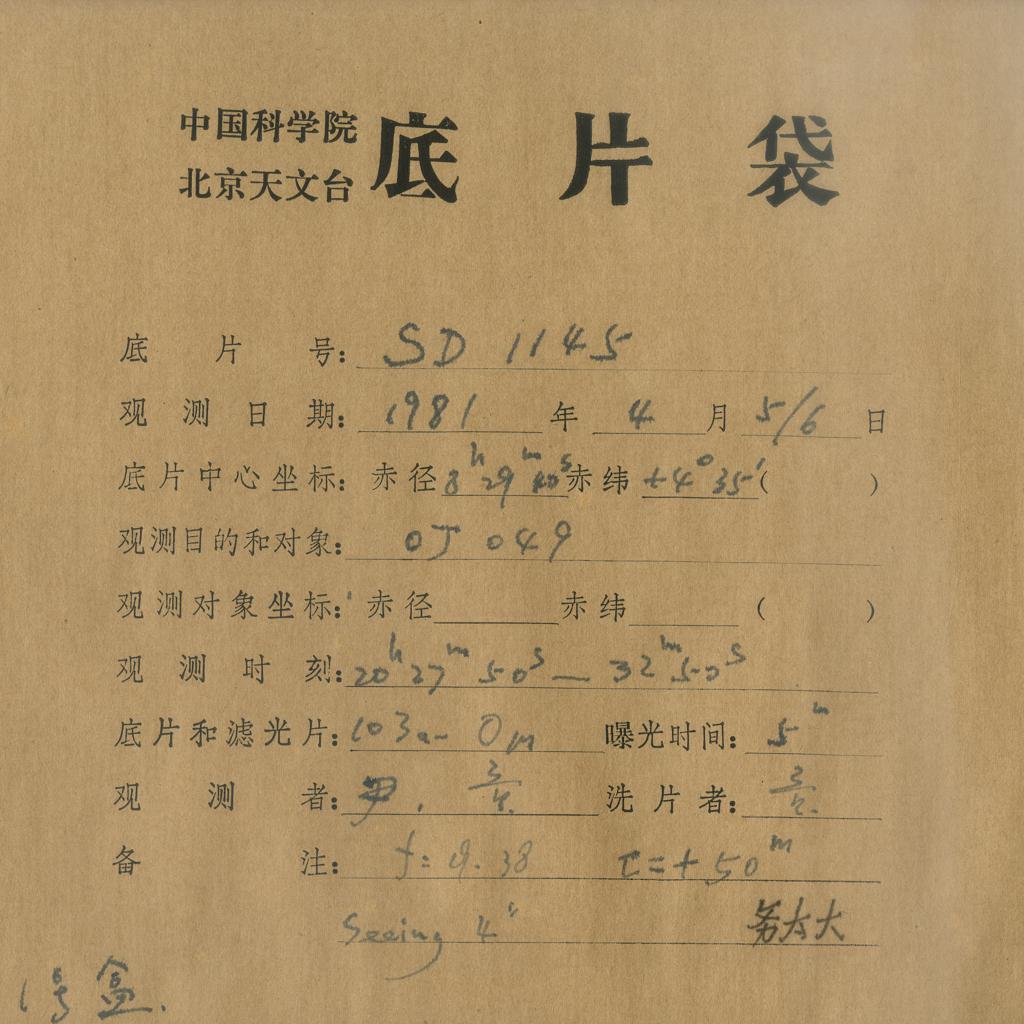 中国科学院
北京天文台 底片袋
底片号: SD 1145
观测日期: 1981 年 4 月 5/6 日
底片中心坐标: 赤径 8h 29m 40s 赤纬 +4° 35′ ( )
观测目的和对象: OJ 049
观测对象坐标: 赤径 赤纬 ( )
观测时刻: 20h 27m 50s — 32m 50s
底片和滤光片: 103a-O 曝光时间: 5m
观测者: 洗片者:
备注: f= 9.38 t=+50m
Seeing 4″
1号盒.